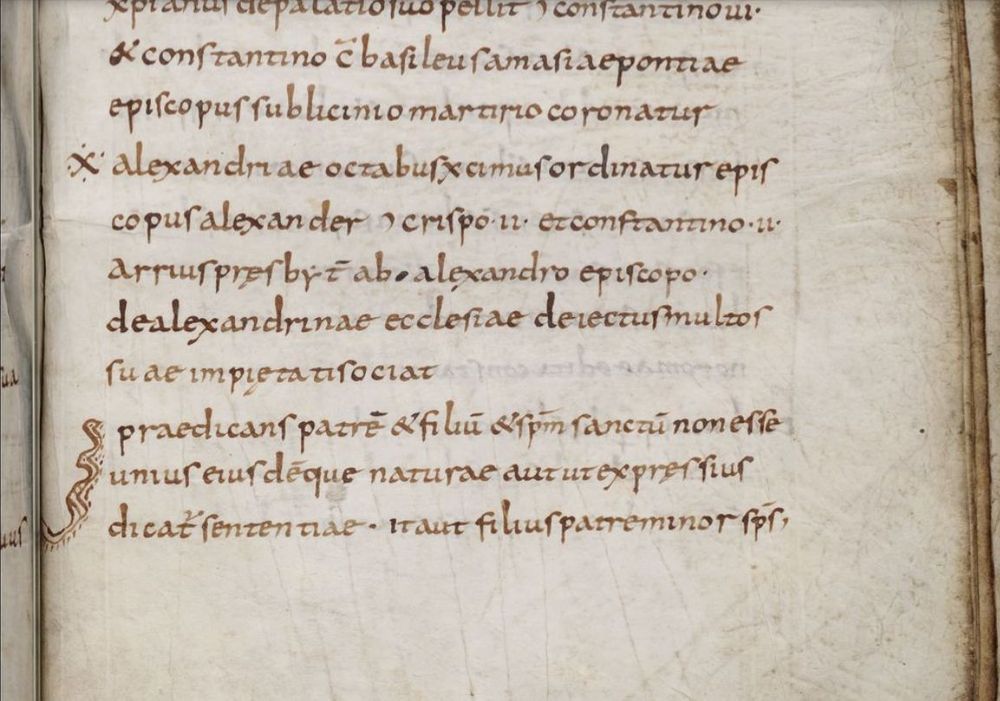 xpianus depalatio suo pellit ͻ constantino ui·
& constantino c̄ basileus amasiae pontiae
episcopus sub licinio martirio coronatur
·X· alexandriae octabusxcimus ordinatur epis
copus alexander ͻ crispo·ii· et constantino·ii·
Arrius pręsby·t̄ ab· alexandro episcopo·
de alexandrinae ecclesiae deiectus multos
suae impiętati sociat
praedicans patrē & filiū & sp̄m sanctū non esse
unius eiusdēque naturae aut ut expręssius
dicat̄ sententiae· ita ut filius patre minor sp̄s,